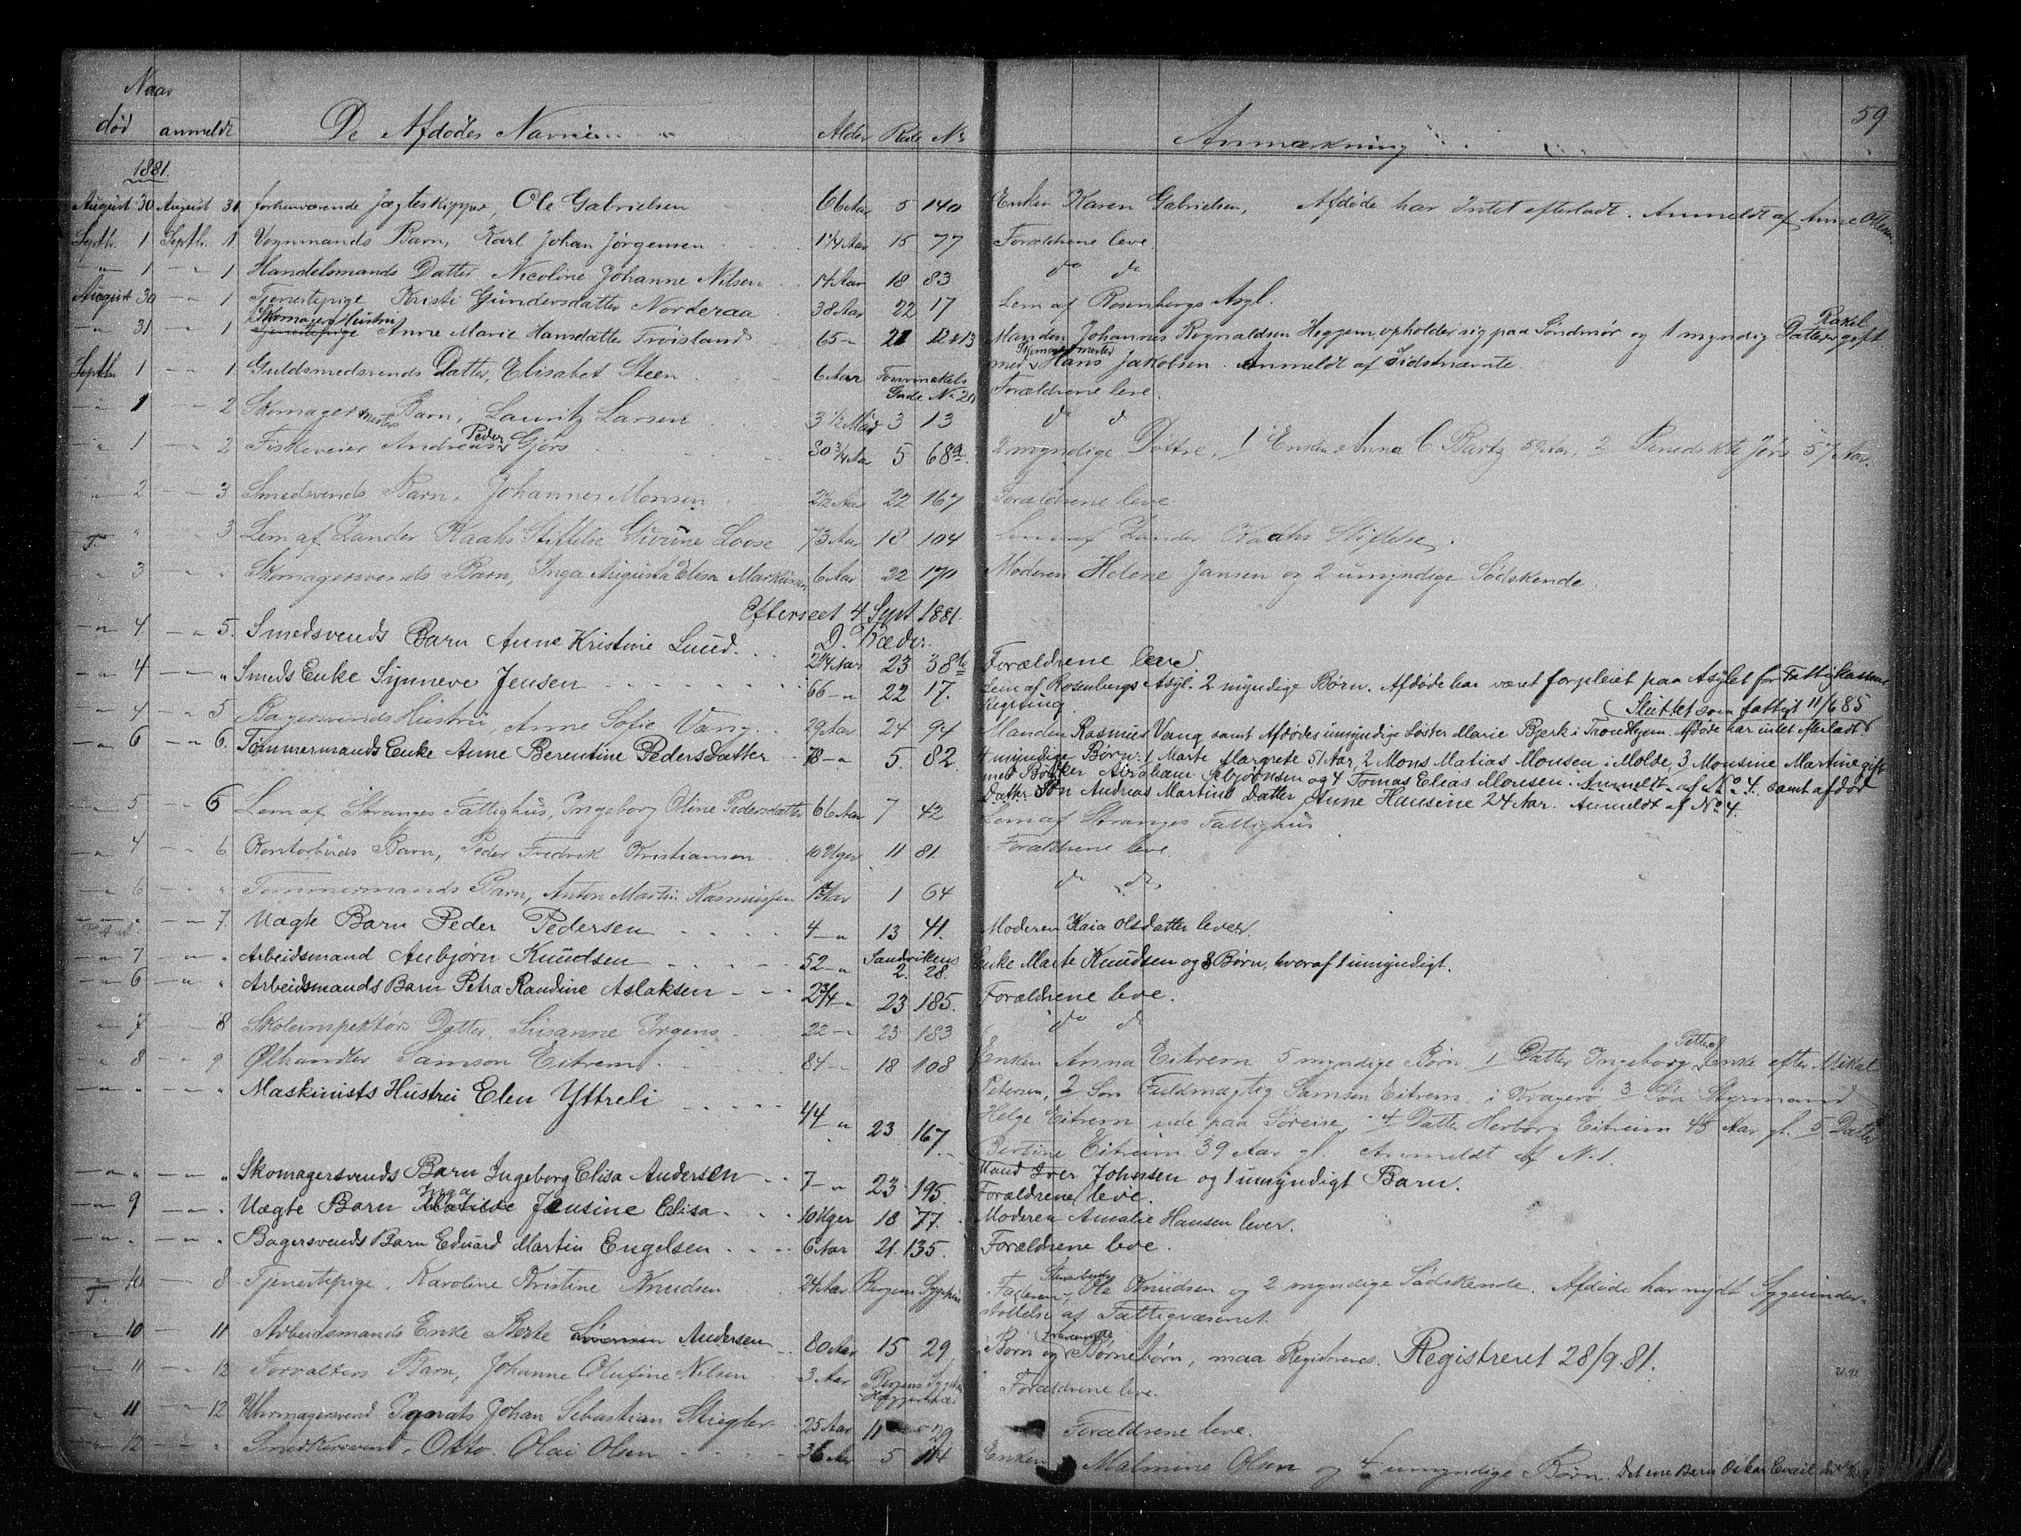 59
Naar
død anmeldt De Afdødes Navne Alder Rode No Anmærkning
1881.
August 30 August 31 forhenværende Jægteskipper, Ole Gabrielsen 66 Aar 5 140 Enken Karen Gabrielsen, Afdøde har Intet efterladt. Anmeldt af Anne Olsen.
Septb. 1 Septb. 1 Vognmands Barn, Karl Johan Jørgensen 1 1/4 Aar 15 77 Forældrene leve.
" 1 " 1 Handelsmands Datter Nicoline Johanne Nilsen 14 Aar 18 83 do do
August 30 " 1 Tjenestepige Kristi Gundersdatter Norderaa 38 Aar 22 17 Lem af Rosenbergs Asyl.
Skomagers Hustru Rakel
" 31 " 1 Tjenestepige Anne Marie Hansdatter Frøisland 65 " 21 12+13 Manden Johannes Rognaldsen Heggem opholder sig paa Søndmør og 1 myndig Datter gift
Septb. 1 " 1 Guldsmedsvends Datter, Elisabet Steen 6 Aar med Hans Jakobsen. Anmeldt af Sidstnævnte.
Gade No 21 Forældrene leve.
" 1 " 2 Skomagermester Barn, Lauritz Larsen 3 1/2 Md 3 13 do do
" 1 " 2 Fiskeveier Andreas Peder Gjørs 80 3/4 Aar 5 68a 2 myndige Døttre, 1 Enken Anna C Bartz 59 Aar, 2 Benedikte Jørs 57 Aar.
" 2 " 3 Smedsvends Barn, Johannes Monsen 2 1/2 Aar 22 167 Forældrene leve
" " 3 Lem af Zander Kaahs Stiftelse Loose 73 Aar 18 104 Lem af Zander Kaahs Stiftelse.
" 3 " " Skomagersvends Barn, Inga Augusta Elisa Markussen 6 Aar 22 170 Moderen Helene Jansen og 2 umyndige Sødskende.
Efterseet 4 Sept 1881.
" 4 " 5. Smedsvends Barn Anne Kristine Lund. 2 1/4 Aar 23 38b Forældrene leve.
" 4 " Smeds Enke Synneve Jensen 66 " 22 17. Lem af Rosenbergs Asyl. 2 myndige Børn. Afdøde har været forpleiet paa Asylet for Fattigkassens
Regning. (Sluttet som fattigt 11/6 85
" 4 " 5 Bagersvends Hustru, Anne Sofie Vang 29 Aar 24 94 Manden Rasmus Vang samt Afdødes umyndige Søster Marie Bjerk i Trondhjem. Afdøde har intet efterladt
" 6 " 6. Tømmermands Enke Anne Berentine Pedersdatter 78 " 5. 82. 4 myndige Børn: 1 Marte Margrete 51 Aar, 2 Mons Matias Monsen i Molde, 3 Monsine Martine gift
med Bødker Abraham Asbjørnsen og 4 Tomas Elias Monsen. Anmeldt af No 4. samt afdød
Datter Søn Andreas Martins Datter Anne Hansine 24 Aar. Anmeldt af No 4.
" 5 " 6 Lem af Stranges Fattighus, Ingeborg Oline Pedersdatter 66 Aar 7 42 Lem af Stranges Fattighus
" 4 " 6 Kontorbuds Barn, Peder Fredrik Kristiansen 10 Uger 11 81. Forældrene leve
" 6 " " Tømmermands Barn, Anton Martin Rasmussen 1 Aar 1 64 do do
" " 7. Uægte Barn Peder Pedersen 4 " 13 41. Moderen Kaia Olsdatter lever.
" 7 " " Arbeidsmand Aubjørn Knudsen 52 " Sandvikens 2. 28. Enke Marte Knudsen og 8 Børn, hvoraf 1 umyndigt.
" 6 " " Arbeidsmands Barn Petra Randine Aslaksen 2 3/4 " 23 185. Forældrene leve.
" 7 " 8 Skoleinspektørs Datter, Susanne Irgens 22 " 23 183 do do
" 8 " 9 Ølhandler Samson Eitrem 84 " 18 108 Enken Anna Eitrem 5 myndige Børn 1 Datter Ingeborg Enke efter Mikal
" " " Maskinists Hustru Elen Yttreli 44 " 23 167. Petersen, 2 Søn Fuldmægtig Samson Eitrem, i Kragerø 3 Søn Styrmand
Helge Eitrem ude paa Søreise, 4 Datter Herborg Eitrem 43 Aar gl. 5 Datter
Bertine Eitrem 39 Aar gl. Anmeldt af No 1.
Mand Iver Johnsen og 1 umyndigt Barn.
" " " Skomagersvends Barn Ingeborg Elisa Andersen 7 " 23 195. Forældrene leve.
" 9 " " Uægte Barn Inga Matilde Jensine Elisa 10 Uger 18 77. Moderen Amalie Hansen lever.
" " " Bagersvends Barn Eduard Martin Engelsen 6 Aar 21. 135. Forældrene leve.
" 10 " 8 Tjenestepige, Karoline Kristine Knudsen 24 Aar Bergens Sygehus Faderen, Ole Knudsen og 2 myndige Sødskende. Afdøde har nydt Sygeunder-
støttelse af Fattigvæsenet.
" 10 " 11 Arbeidsmands Enke Berte Andersen 80 Aar 15 29 Børn og fraværende Børnebørn, maa Registreres. Registreret 28/9 81.
" 11 " 12 Forvalters Barn, Johanne Olufine Nilsen 3 Aar Bergens Forældrene leve.
" 11 " 12 Uhrmagersvend Ignats Johan Sebastian Stiegler 25 Aar 11 29 Forældrene leve.
" 12 " " Snedkersvend, Otto Olai Olsen 36 Aar 5 114 Enken Malmine Olsen og 4 umyndige Børn. Det ene Barn Oskar Emil